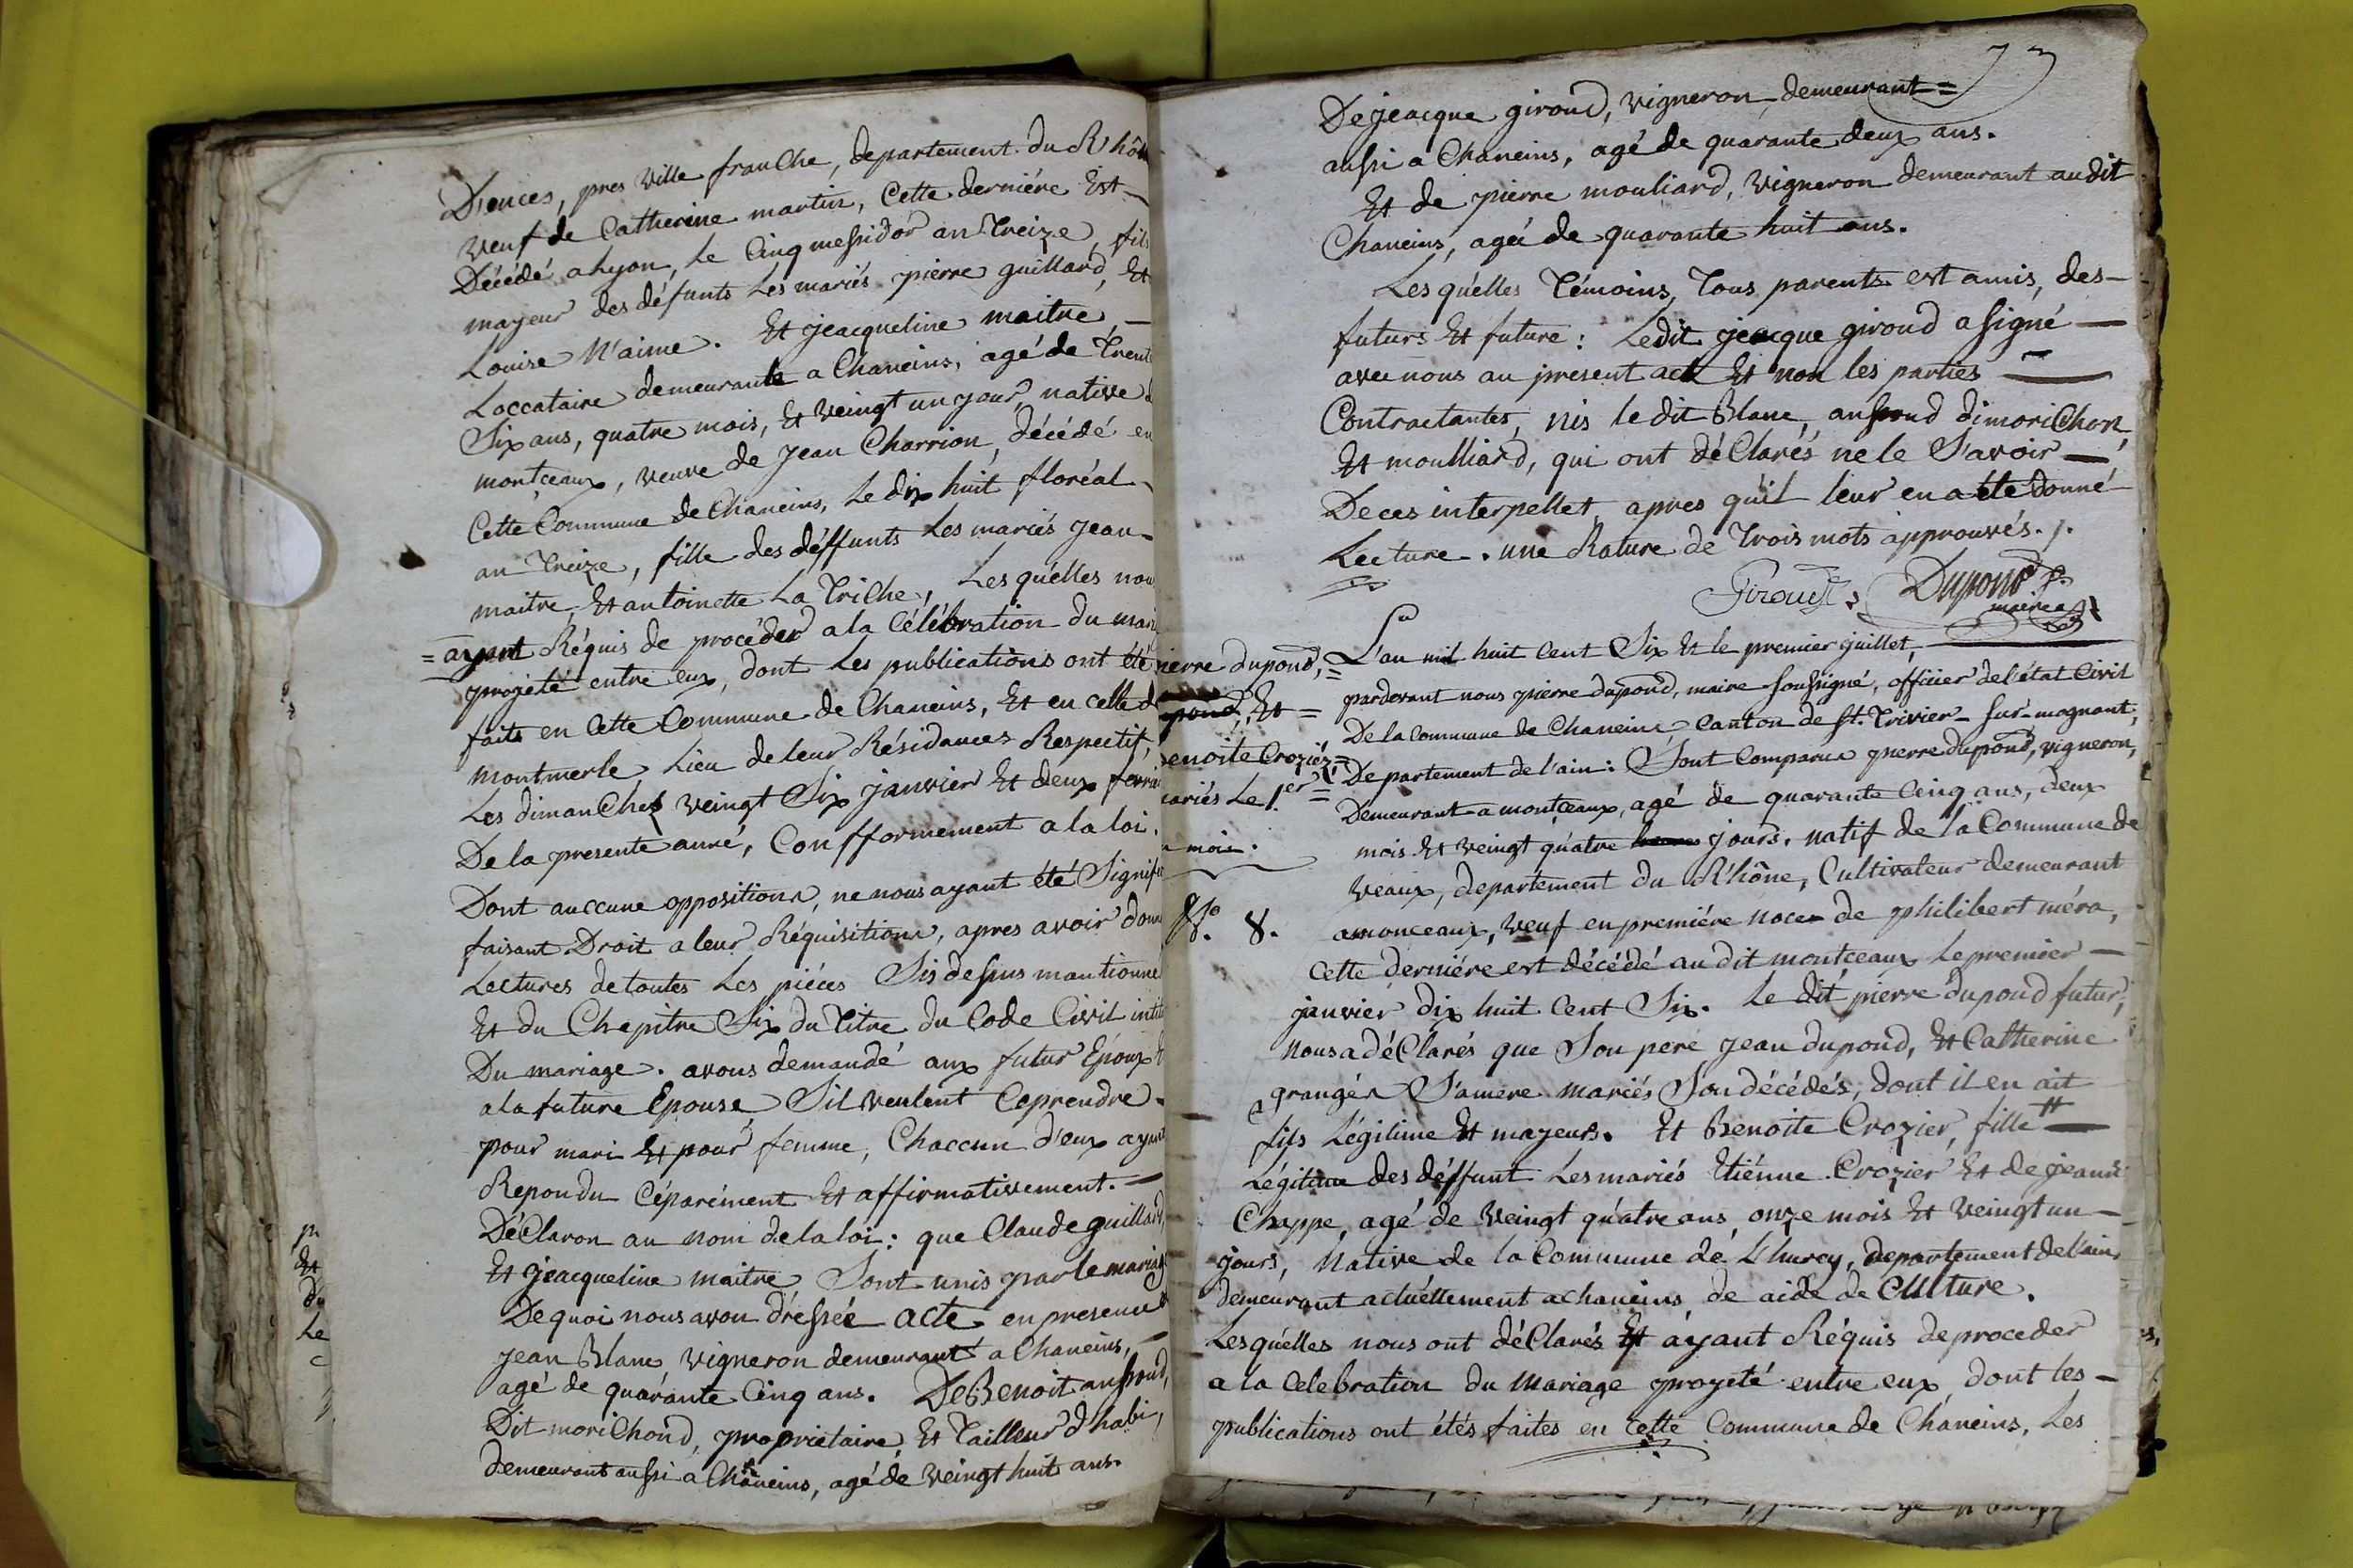 D'ouces, pres ville franche, departement du Rhôn
veuf de Catherine martin, Cette derniére Est —
Décédé a Lyon, Le Cinq messidor an Treize, fils
mayeur des défunts Les mariés pierre guillard, Et
Louise N'aime. Et jeacqueline maitre —
Loccataire demeurante a Chaneins, agé de Trent
Six ans, quatre mois, Et veingt un jour, native d
montceaux, veuve de Jean Charrion, décédé en
Cette Commune de Chaneins, Le dix huit floréal
an Treize, fille des déffunts Les mariés Jean
maitre, Et antoinette La Triche, Les qu'elles nou
= ayant Réquis de procéder a la Célébration du mari
projeté entre eux, dont Les publications ont été
faits en Cette Commune de Chaneins, Et en celle d
montmerle Lieu de leur Résidances Respectif,
Les dimanches veingt Six janvier Et deux fevri
De la presente anné, Confformement a la loi.
Dont auccune oppositions, ne nous ayant été Signif
faisant Droit a leur Réquisitions, apres avoir donn
Lectures de toutes Les piéces Sis dessus mantionné
Et du Chapitre Six du Titre du Code Civil intit
Du mariage. avons demandé aux futur Epoux &
a la future Epouse, Sil veulent Ceprendre
pour mari Et pour femme, Chaccun d'eux ayant
Repondu Céparément Et affirmativement. —
DéClaron au nom de la loi: que Claude guillard,
Et Jeacqueline maitre Sont unis par le mariag
De quoi nous avon dressée acte en presence
Jean Blanc vigneron demeurant a Chaneins, —
agé de quarante Cinq ans. De Benoit
Dit moriChond, propriétaire Et Tailleur d'habi,
demeurant aussi a Chaneins, agé de veingt huit ans.
73
De jeacque giroud, vigneron demeurant =
aussi a Chaneins, agé de quarante deux ans.
Et de pierre mouliard, vigneron demeurant au dit
Chaneins, agé de quarante huit ans.
Les qu'elles Témoins, Tous parents est amis, des —
futurs Et future: Ledit jeacque giroud a signé —
avec nous au present act Et non les parties —
Contractantes, nis le dit Blanc, dimoriChon,
Et moulliard, qui ont déClarés ne le S'avoir —
De ces interpellet, apres qu'il leur en a été donné
Lecture. une Rature de Trois mots approuvés./.
Giroud. Dupond
maire
L'an mil huit Cent Six Et le premier juillet, —
pardevant nous pierre dupond, maire soussigné, officier de l'état Civil
De la Commune de Chaneins Canton de St. Trivier-sur-mognant,
Departement de l'ain: Sont Comparus pierre dupond, vigneron,
Demeurant a montceaux, agé de quarante Cinq ans, deux
mois Et veingt quatre jours. natif de la Commune de
veaux, departement du Rhône, Cultivateur demeurant
amonceaux, veuf en premiére noces de philibert méra,
Cette derniére est décédé au dit montceaux Le premier —
janvier dix huit Cent Six. Le dit pierre dupond futur,
nous a déClarés que Son pere jean dupond, Et Catherine
granger S'amere mariés Son décédés, dont il en ait
fils Légitime Et mayeurs. Et Benoite Crozier, fille —
Légitime des déffunt Les mariés Etiénne Crozier Et de jeanne
Chappe, agé de veingt qu'atre ans onze mois Et veingt un —
jours, Native de la Commune de L'hurcy, departement de l'ain
demeurant actuéllement a chaneins, de aide de Culture.
Les qu'elles nous ont déClarés Et ayant Réquis de proceder
a la Celebration du mariage projeté entre eux, dont les —
publications ont étés faites en Cette Commune de Chaneins, Les
ierre dupond, =
pond, Et =
enoite Crozier =
ariés Le 1.er =
mois.
N.° 8.